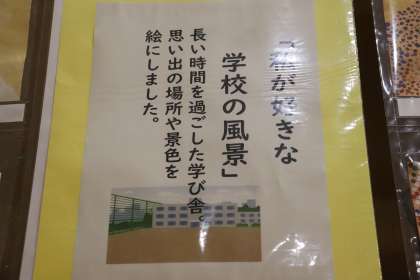 「私が好きな
学校の風景」
長い時間を過ごした学び舎。
思い出の場所や景色を
絵にしました。